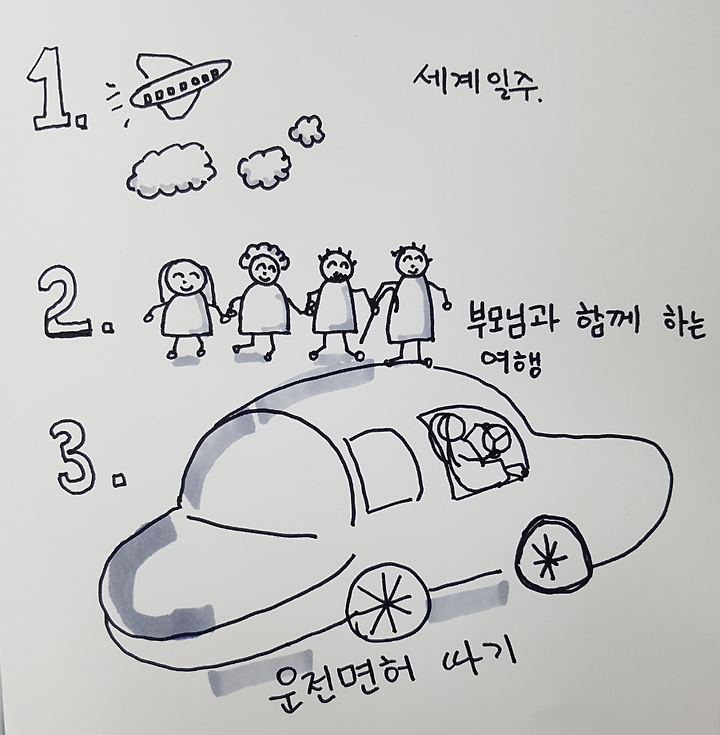 1.
세계일주.
2.
부모님과 함께 하는
여행
3.
운전면허 따기